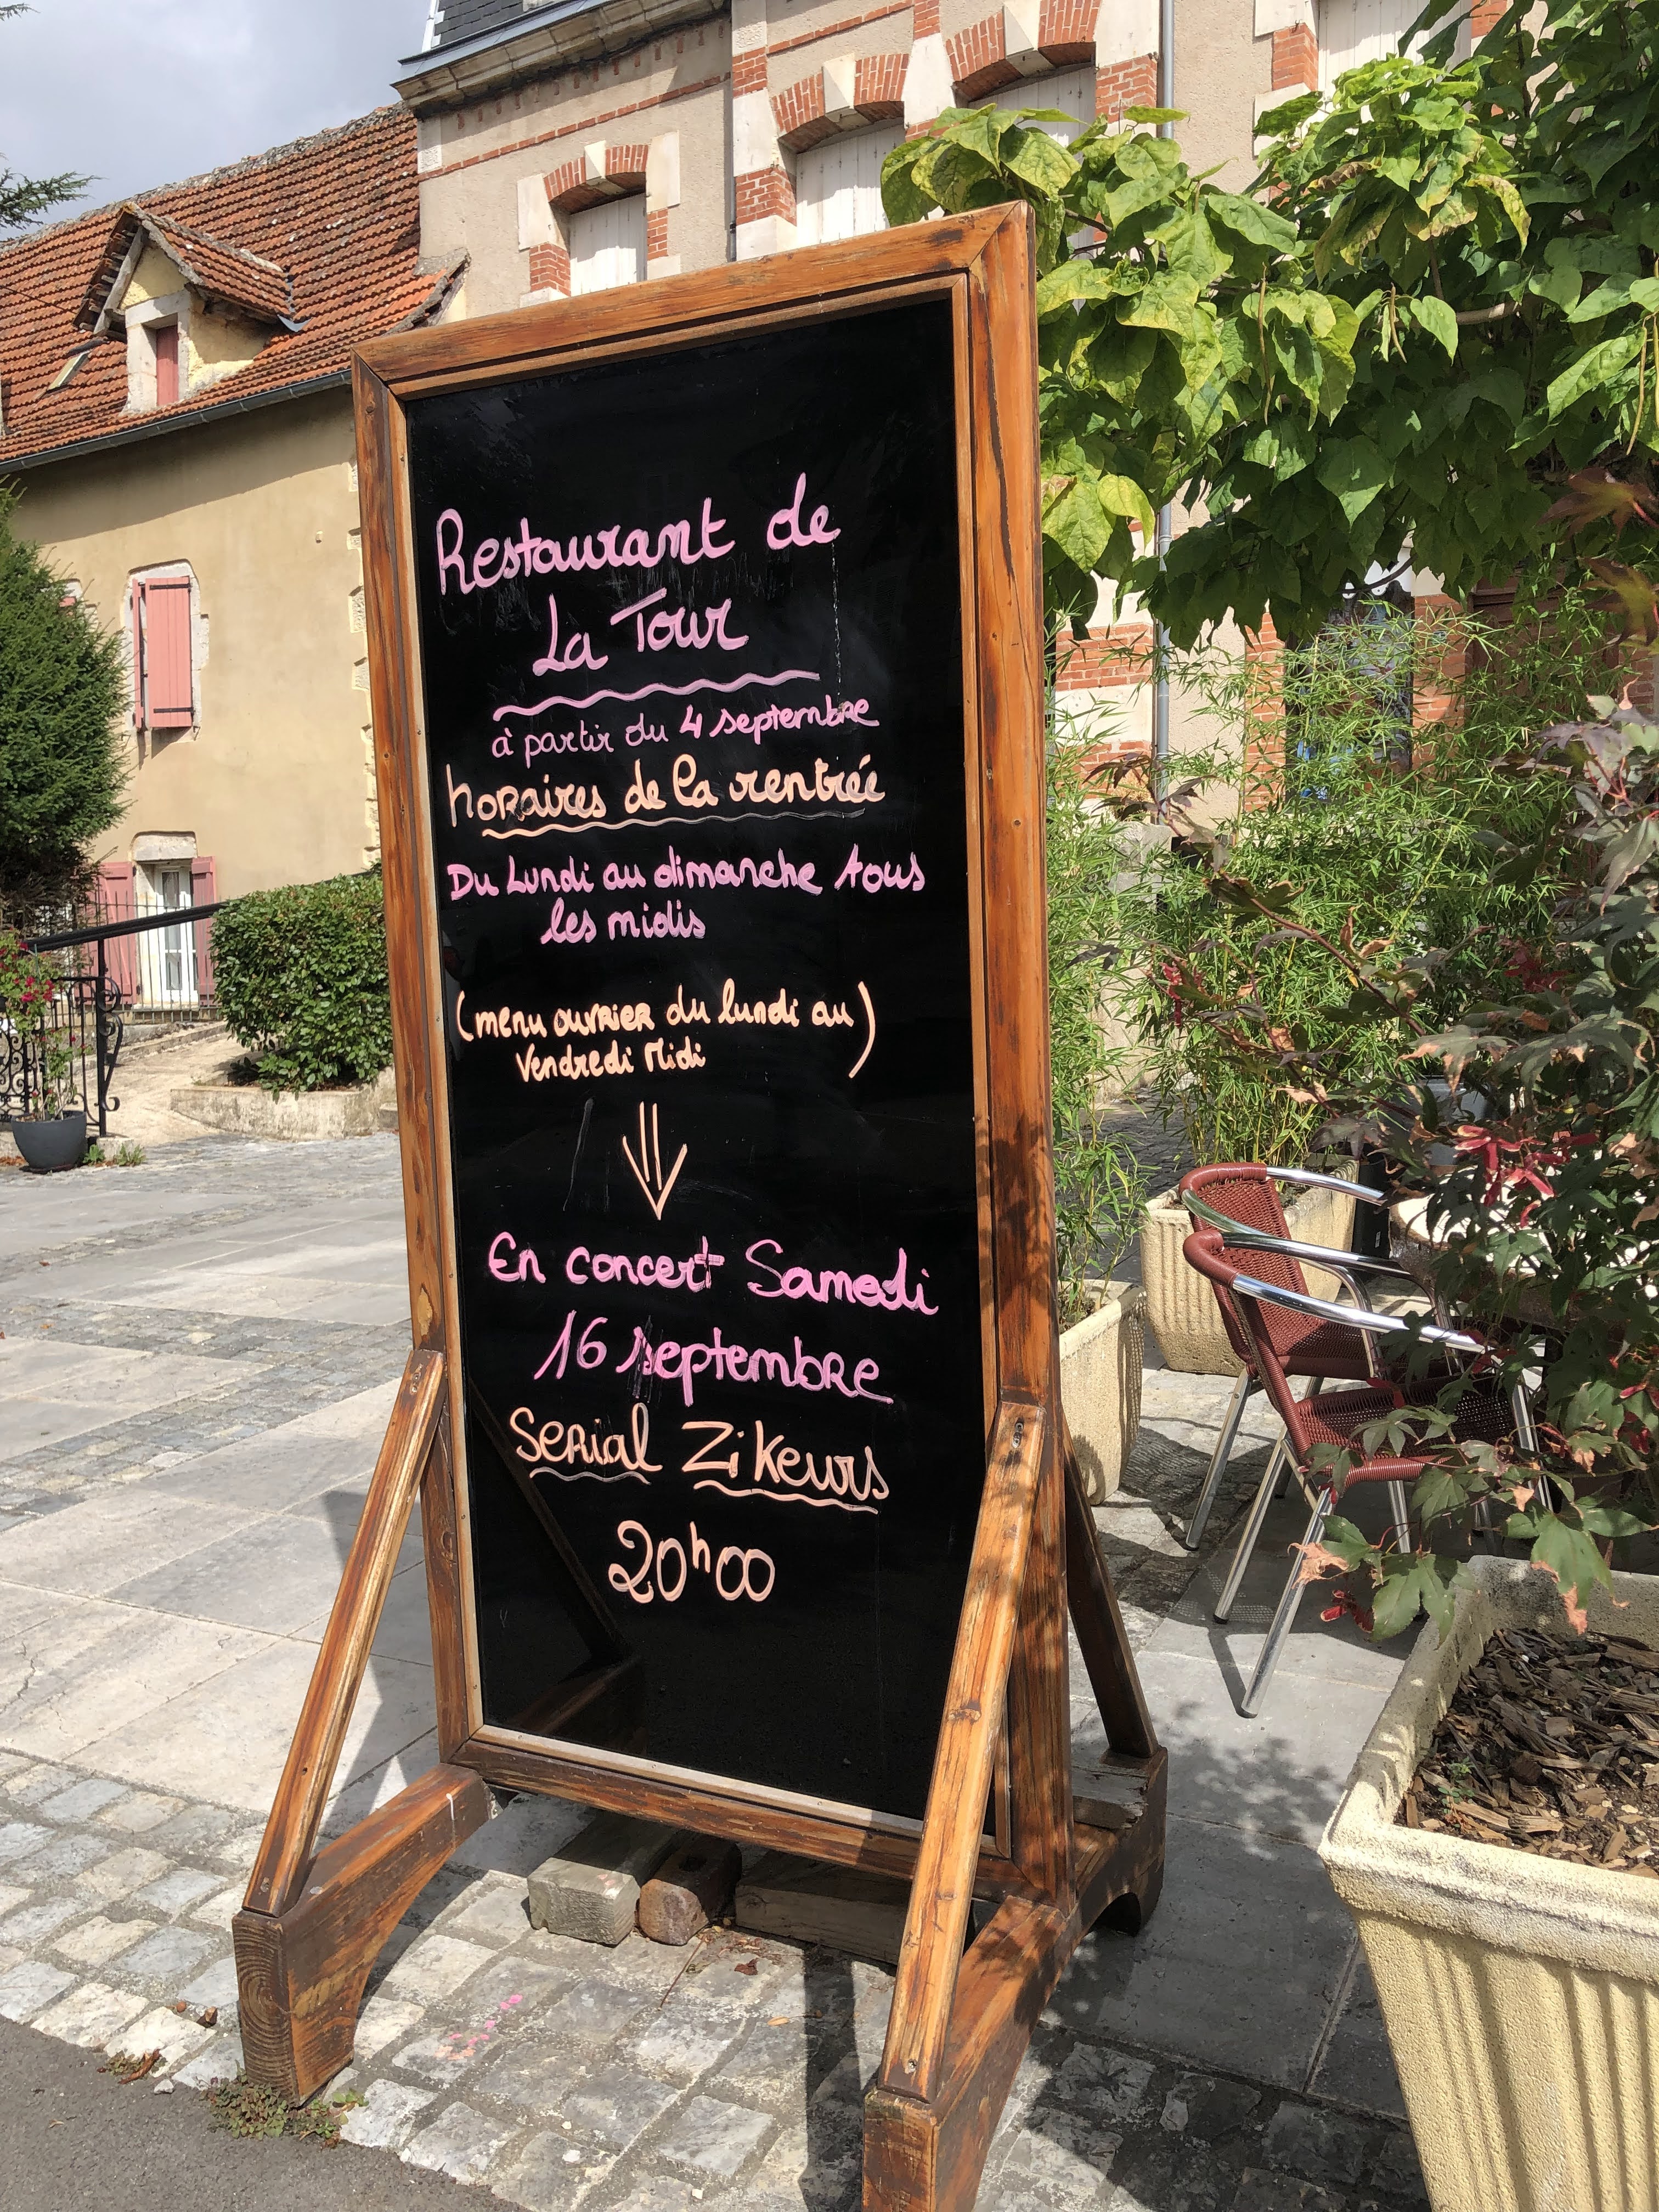 Restaurant de
La Tour
à partir du 4 septembre
horaires de la rentrée
Du Lundi au dimanche tous
les midis
(menu ouvrier du lundi au)
Vendredi Midi
En concert Samedi
16 septembre
Serial Zikeurs
20h00